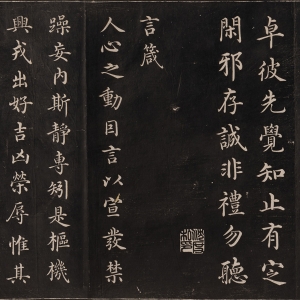 卓彼先覺知止有定
閑邪存誠非禮勿聽
言箴
人心之動因言以宣發禁
躁妄內斯靜專矧是樞機
興戎出好吉凶榮辱惟其